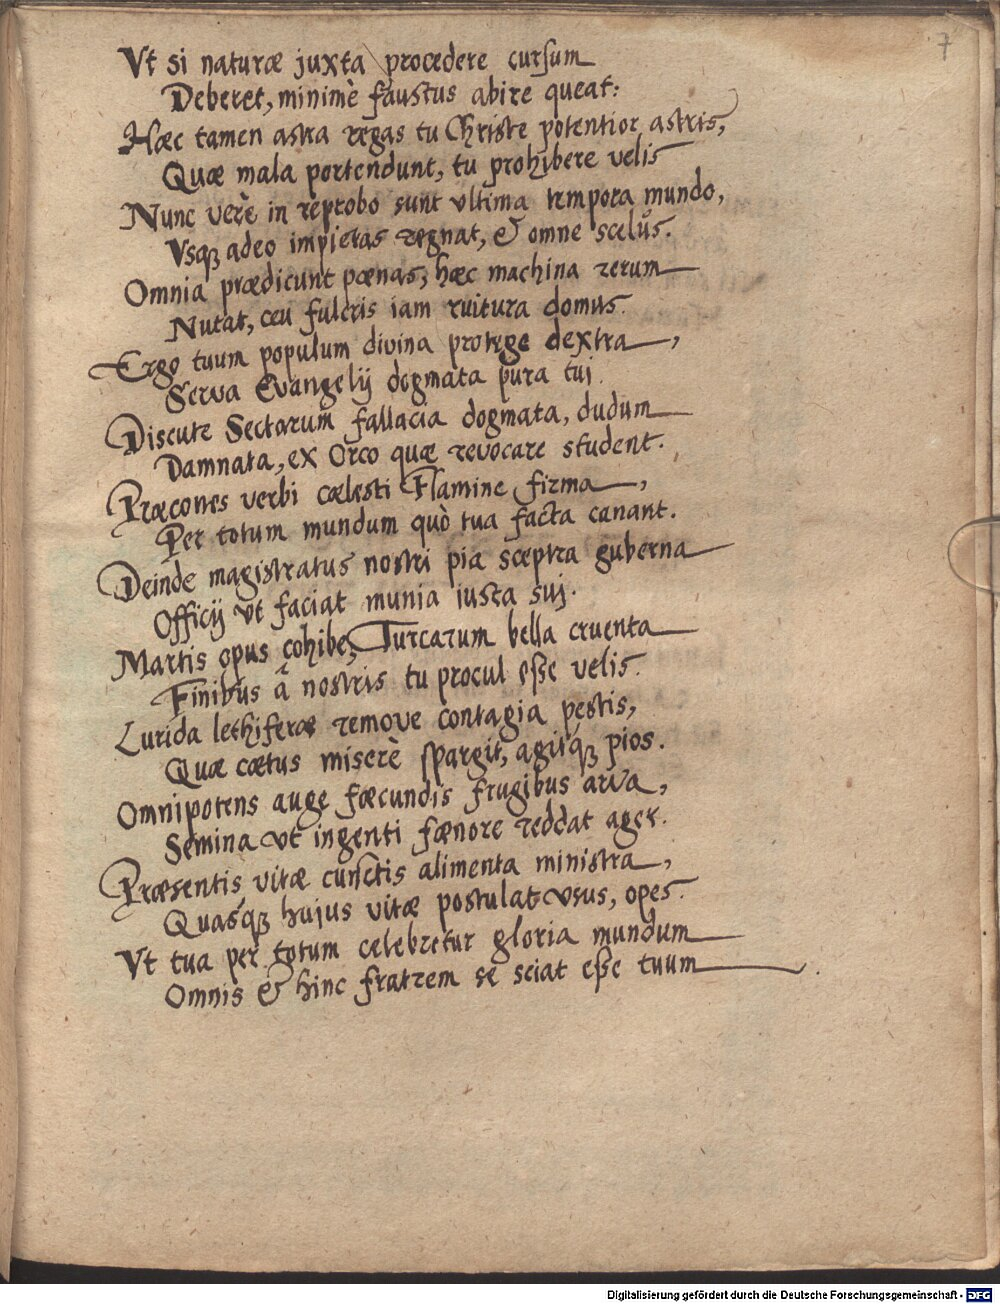 7
Vt si naturæ juxta procedere cursum
Deberet, minimè faustus abire queat:
Hæc tamen astra regas tu Christe potentior astris,
Quæ mala portendunt, tu prohibere velis
Nunc verè in reprobo sunt vltima tempora mundo,
Vsq3 adeo impietas regnat, & omne scelus.
Omnia prædicunt pœnas, hæc machina rerum
Nutat, ceu fulcris iam ruitura domus.
Ergo tuum populum divina protege dextra,
Serva Evangelij dogmata pura tui.
Discute Sectarum fallacia dogmata, dudum
Damnata, ex Orco quæ revocare student.
Præcones verbi cœlesti Flamine firma,
Per totum mundum quò tua facta canant.
Deinde magistratus nostri pia sceptra guberna
Officij vt faciat munia iusta sui.
Martis opus cohibe, Turcarum bella cruenta
Finibus â nostris tu procul esse velis.
Lurida lethiferæ remove contagia pestis,
Quæ cœtus miserè spargit, agitq3 pios.
Omnipotens auge fœcundis frugibus arva,
Semina vt ingenti fœnore reddat ager.
Præsentis vitæ cunctis alimenta ministra,
Quasq3 hujus vitæ postulat vsus, opes.
Vt tua per totum celebretur gloria mundum
Omnis & hinc fratrem se sciat esse tuum.
Digitalisierung gefördert durch die Deutsche Forschungsgemeinschaft - DFG